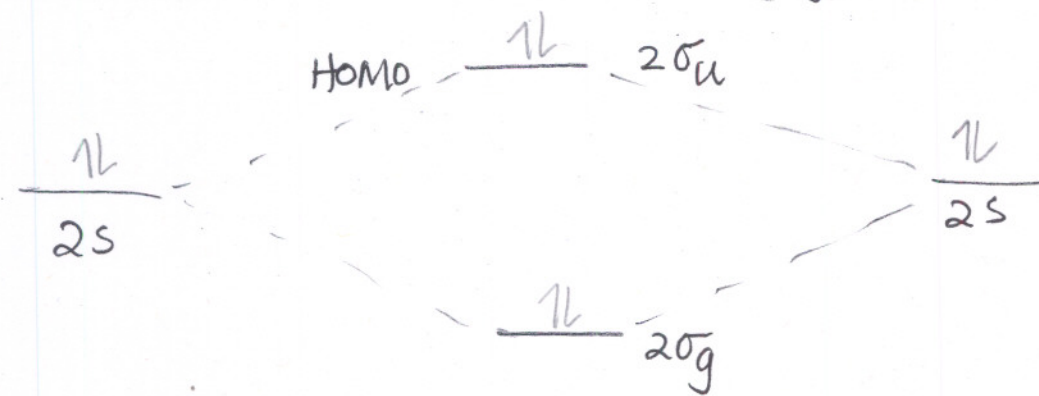 HOMO ⥮ 2σu
⥮ ⥮
2s 2s
⥮ 2σg